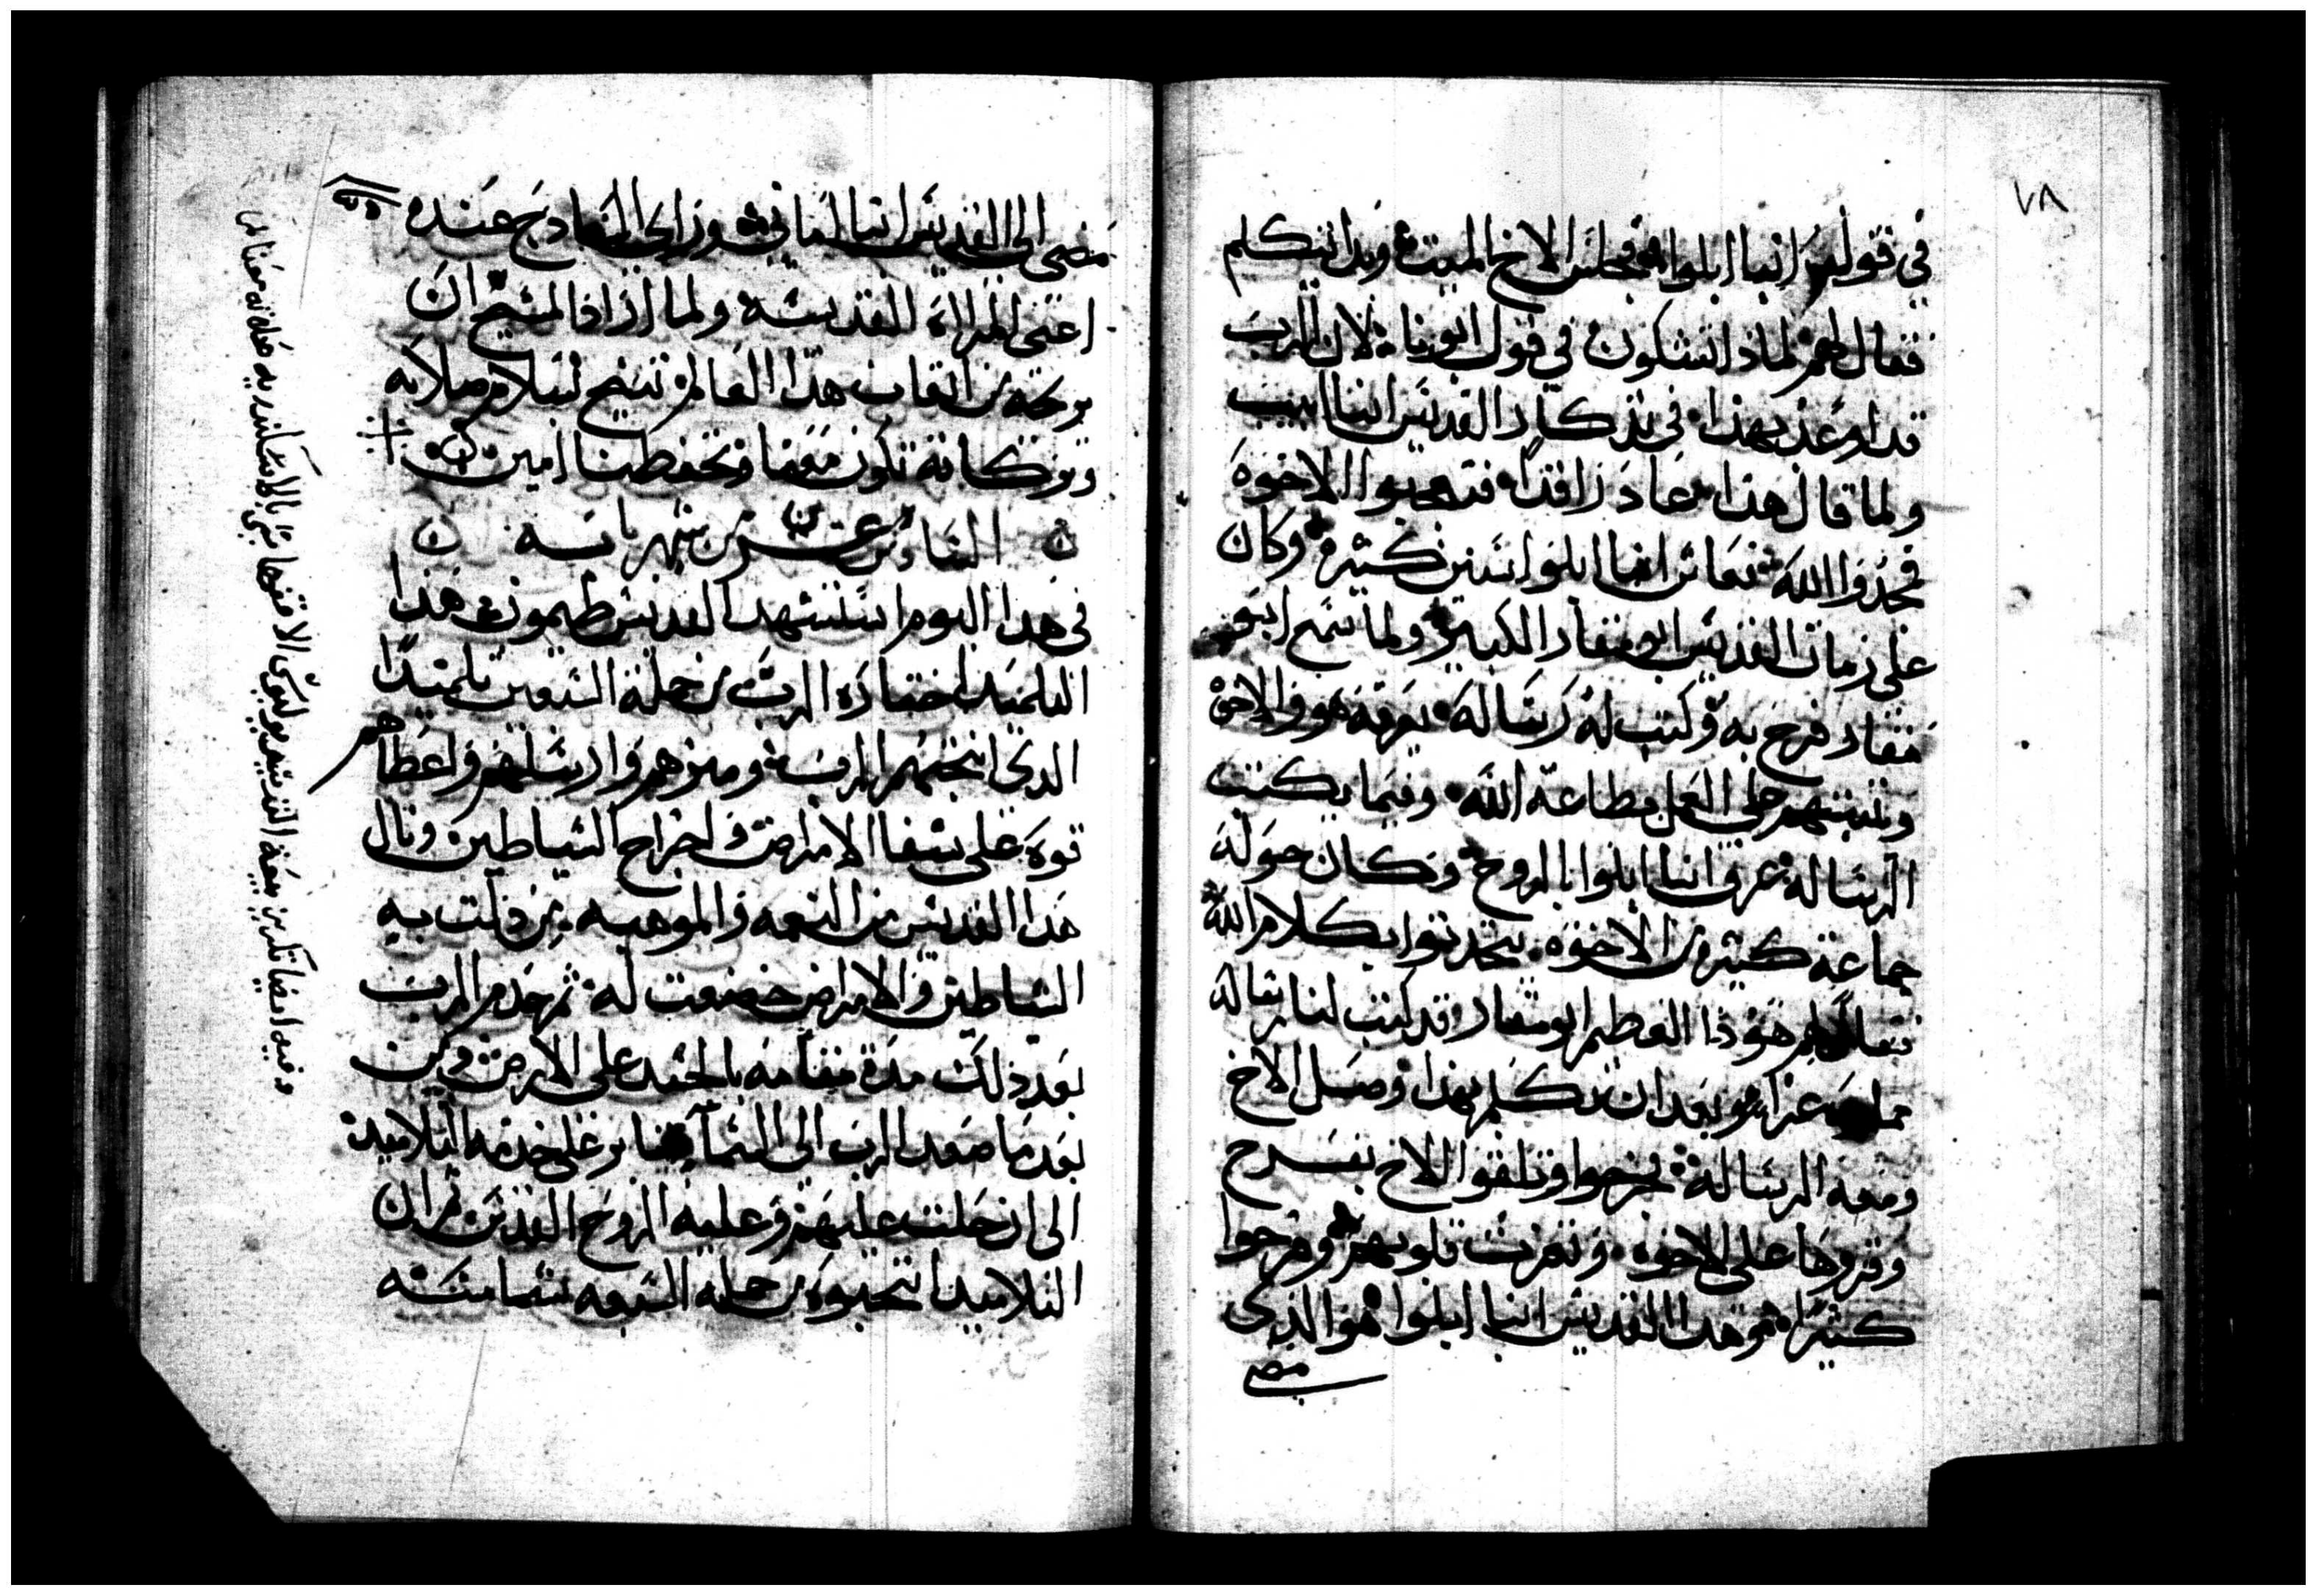 ٧٨
في قول انبا ابلوا فجلس الاخ الميت وبدا يتكلم
فقال لهم لماذا تشكون في قول ابونا لان الرب
قد اوعد بهذا في تذكار القديس انبا ابيب
ولما قال هذا عاد راقدا فتعجبوا الاخوة
ومجدوا الله فعاش انبا ابلوا سنين كثيرة وكان
على زمان القديس ابو مقار الكبير ولما سمع ابو
مقار فرح به وكتب له رسالة يعزيه هو والاخوة
ويثبتهم على العمل بطاعة الله وفيما يكتب
الرسالة عرف انبا ابلوا بالروح وكان حوله
جماعة كثيرة من الاخوة يتحدثوا بكلام الله
فقال لهم هوذا العظيم ابو مقار قد كتب لنا رسالة
مملوة عزا وبعد ان تكلم بهذا وصل الاخ
ومعه الرسالة فخرجوا وتلقوا الاخ بفرح
وقروها على الاخوة وتعزت قلوبهم وفرحوا
كثيرا وهدا القديس انبا ابلوا هو الذي
مضى
مضى الى القديس انبا اماني وراى المسادج عنده
اعني المراة القديسة ولما اراد المسيح ان
يريحه من اتعاب هذا العالم تنيح بسلام صلاته
وبركاته تكون معنا وتحفظنا امين
السادس عشر من شهر بابه
في هدا اليوم استشهد القديس طيمون هذا
التلميد اختاره الرب من جملة السبعين تلميدا
الدي انتخبهم الرب وميزهم وارسلهم واعطاهم
قوة على شفا الامراض واخراج الشياطين ونال
هدا القديس من النعمه والموهبه من دلت به
الشياطين والامراض خضعت له ثم خدم الرب
بعد ذلك مدة مقامه بالجسد على الارض ومن
بعد ما صعد الرب الى السما ثابر على خدمه التلاميد
الى ان حلت عليهم وعليه الروح القدس ثم ان
التلاميد انتخبوه من جمله السبعه شمامسه